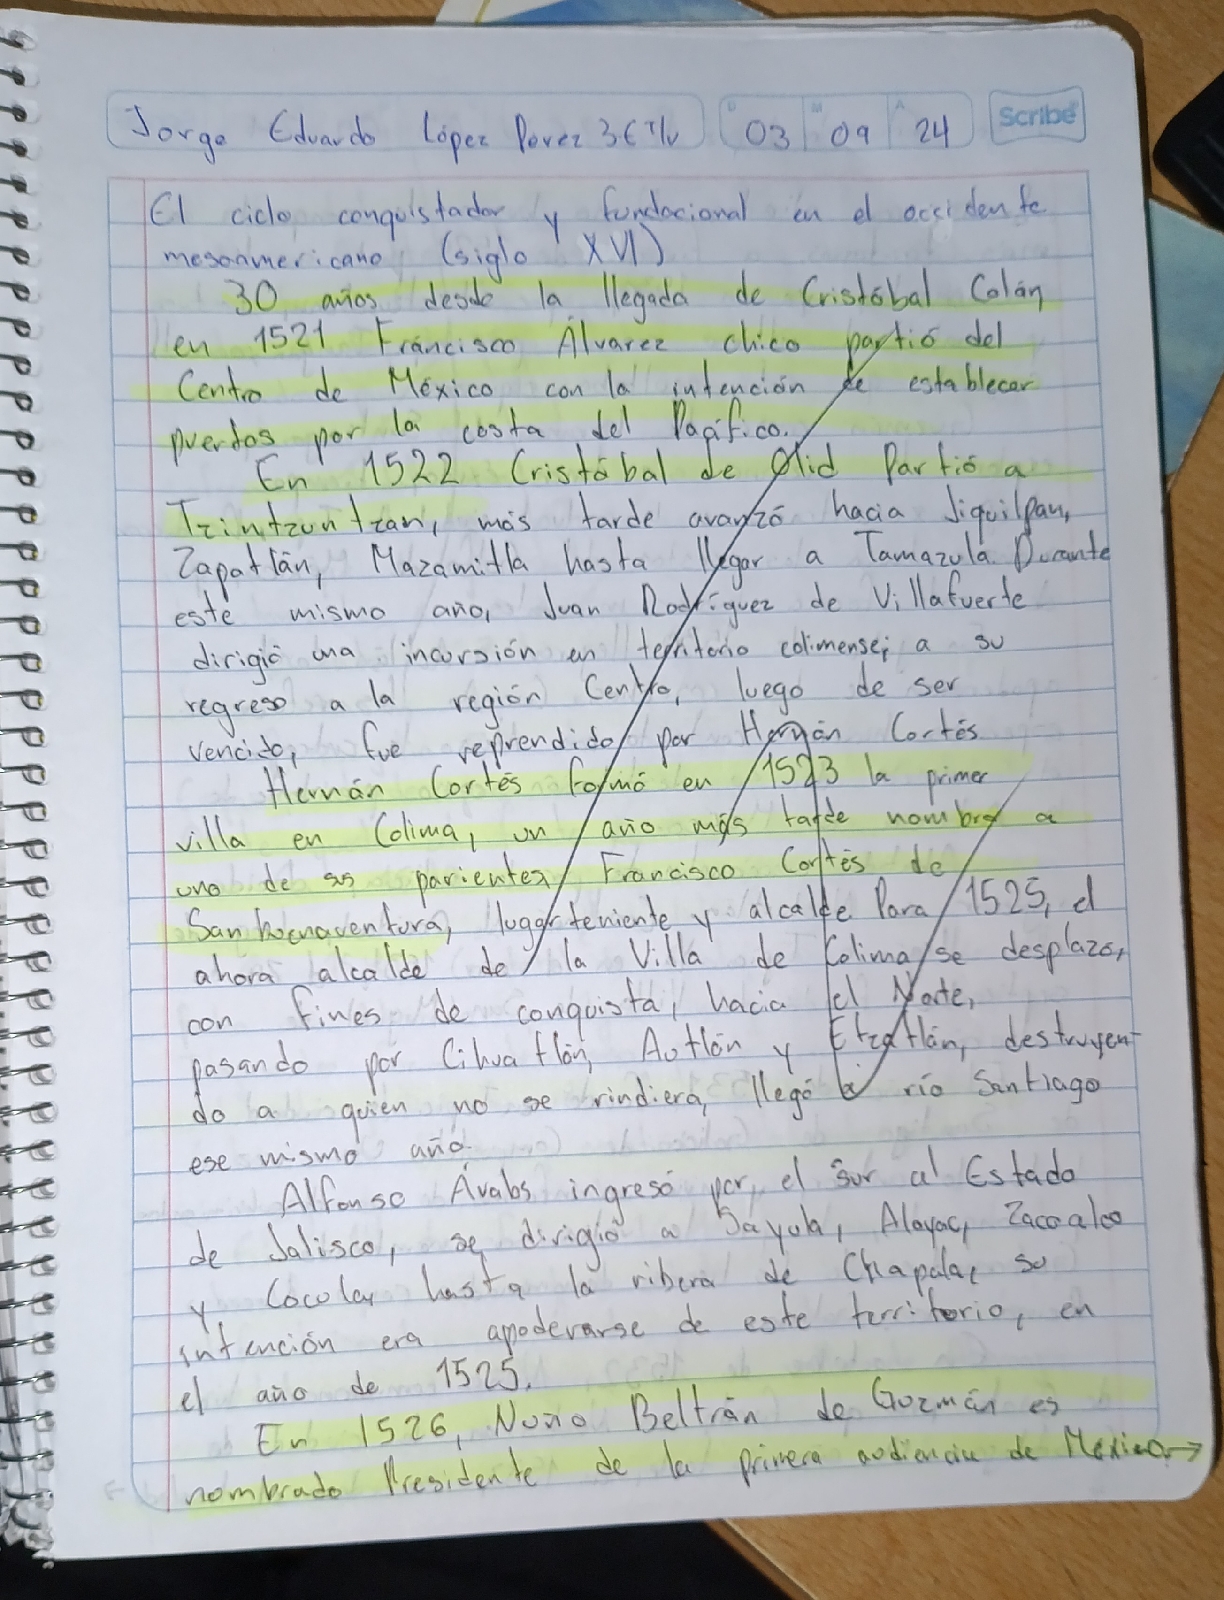 Jorge Eduardo López Perez 3E T/V D 03 M 09 A 24 Scribe
El ciclo conquistador y fundacional en el occidente
mesoamericano (siglo XVI)
30 años desde la llegada de Cristóbal Colón
en 1521 Francisco Álvarez chico partió del
Centro de México con la intención de establecer
puertos por la costa del Pacífico.
En 1522 Cristóbal de Olid Partió a
Tzintzuntzan, más tarde avanzó hacia Jiquilpan,
Zapatlán, Mazamitla hasta llegar a Tamazula. Durante
este mismo año, Juan Rodríguez de Villafuerte
dirigió una incursión en territorio colimense; a su
regreso a la región Centro, luego de ser
vencido, fue reprendido por Hernán Cortés
Hernán Cortés formó en 1523 la primer
villa en Colima, un año más tarde nombra a
uno de sus parientes, Francisco Cortés de
San buenaventura, lugarteniente y alcalde Para 1525, el
ahora alcalde de la Villa de Colima se desplazo,
con fines de conquista, hacia el Norte,
pasando por Cihuatlán, Autlán y Etzatlán, destruyen-
do a quien no se rindiera, llegó a río Santiago
ese mismo año.
Alfonso Ávalos ingresó por el Sur al Estado
de Jalisco, se dirigió a Sayula, Atoyac, Zacoalco
y Cocula, hasta la ribera de Chapala, su
intención era apoderarse de este territorio, en
el año de 1525.
En 1526, Nuño Beltrán de Guzmán es
nombrado Presidente de la primera audiencia de México →